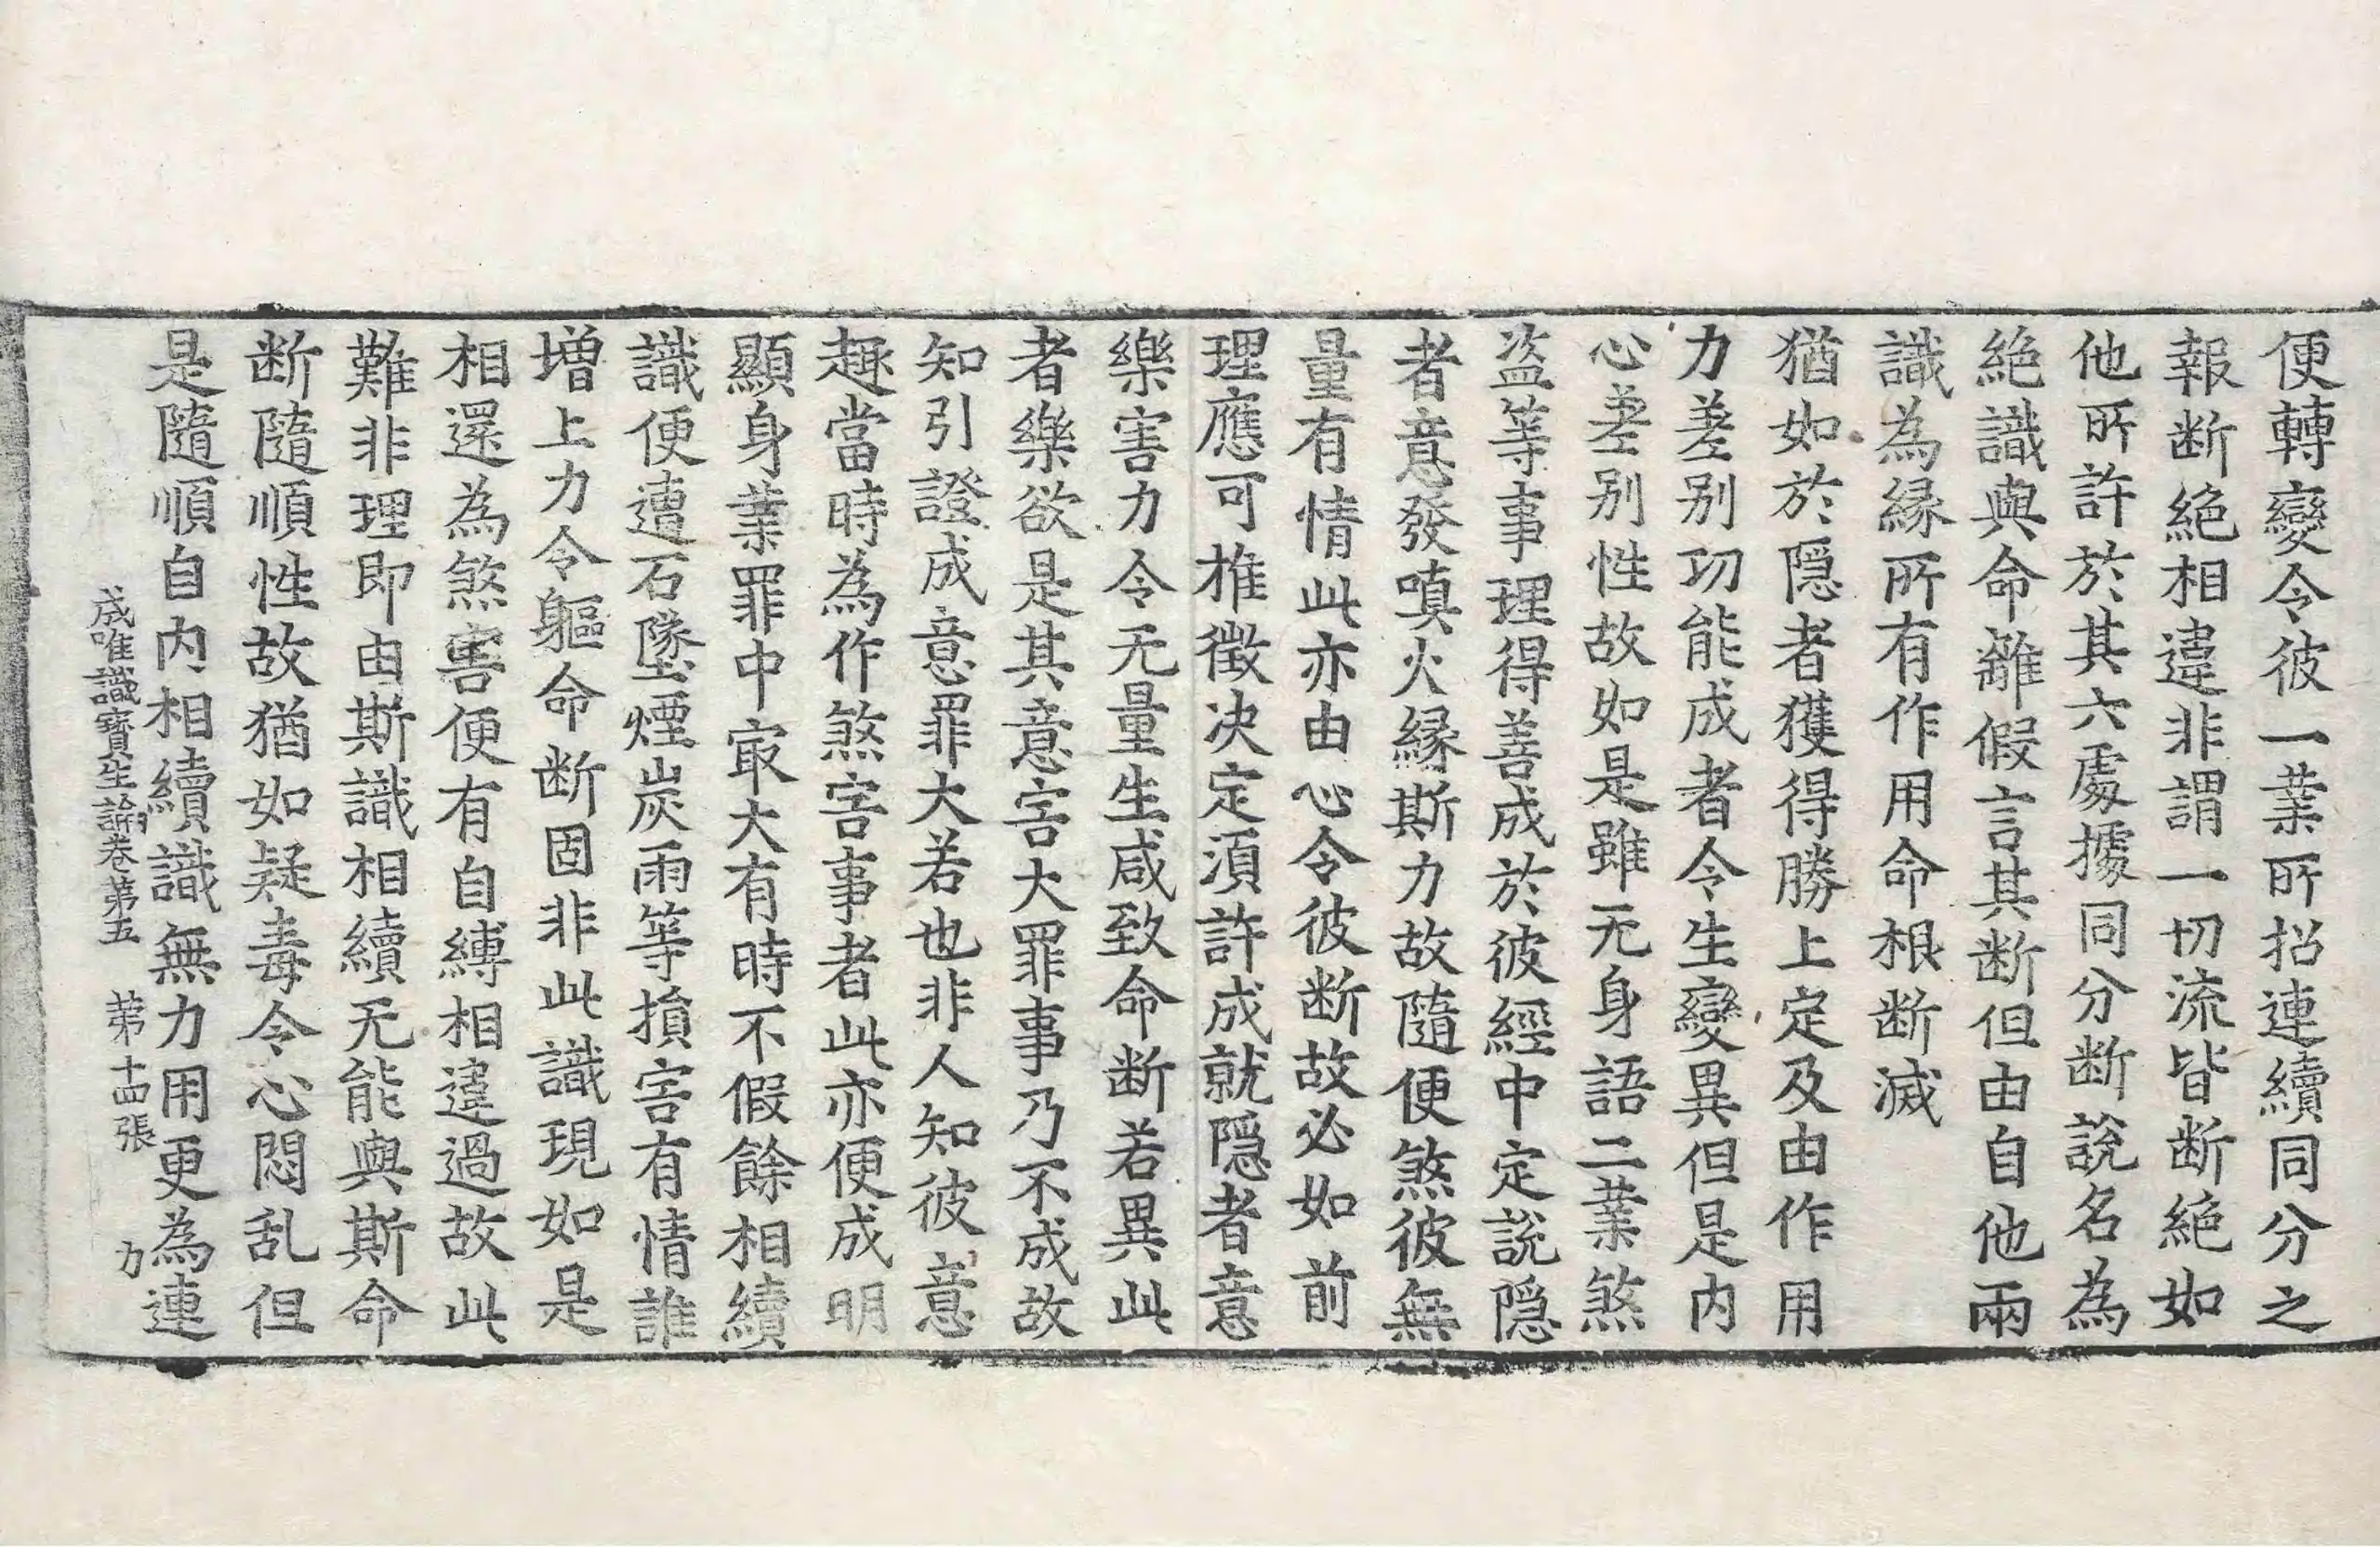 便轉變令彼一業所招連續同分之
報断絶相違非謂一切流皆断絶如
他所許於其六處據同分断說名為
絶識與命離假言其断但由自他兩
識為縁所有作用命根断滅
猶如於隠者獲得勝上定及由作用
力差别㓛能成者令生變異但是内
心差别性故如是雖无身語二業煞
盗等事理得善成於彼經中定說隠
者意發嗔火縁斯力故隨便煞彼無
量有情此亦由心令彼断故必如前
理應可推徴决定湏許成就隠者意
樂害力令无量生咸致命断若異此
者樂欲是其意害大罪事乃不成故
知引證成意罪大若也非人知彼意
趣當時為作煞害事者此亦便成明
顯身業罪中㝡大有時不假餘相續
識便遭石墜煙炭雨等損害有情誰
增上力令軀命断固非此識現如是
相還為煞害便有自縛相違過故此
難非理即由斯識相續无能與斯命
断隨順性故猶如疑毒令心悶乱但
是隨順自内相續識無力用更為連
成唯識寳生論卷苐五　苐十四張　力